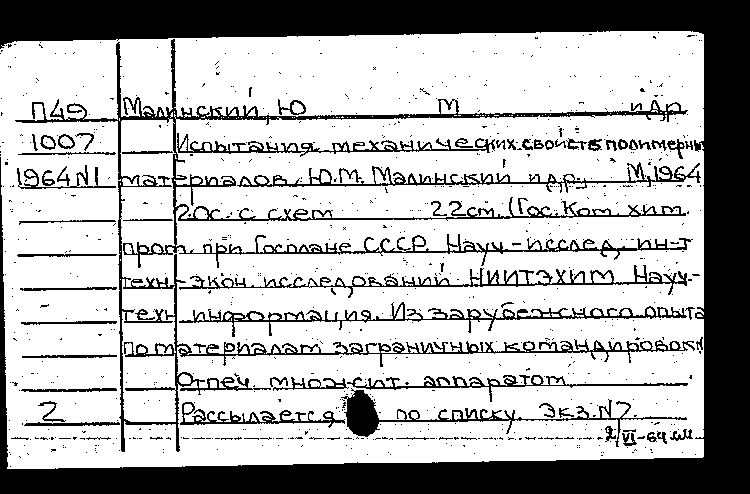 П49 Малинский, Ю М и др
1007 Испытания механических свойств полимерных
1964 N1 материалов. Ю.М. Малинский и др. М, 1964
20с. с схем 22 cm. (Гос. Ком хим.
пром. при Госплане СССР. Науч-исслед. ин-т
техн-экон. исследований НИИТЭХИМ Науч-
техн информация. Из зарубежного опыта
по материалам заграничных командировок)
Отпеч. множит. аппаратом
2 Рассылается по списку. Экз. N7.
2/VI-64